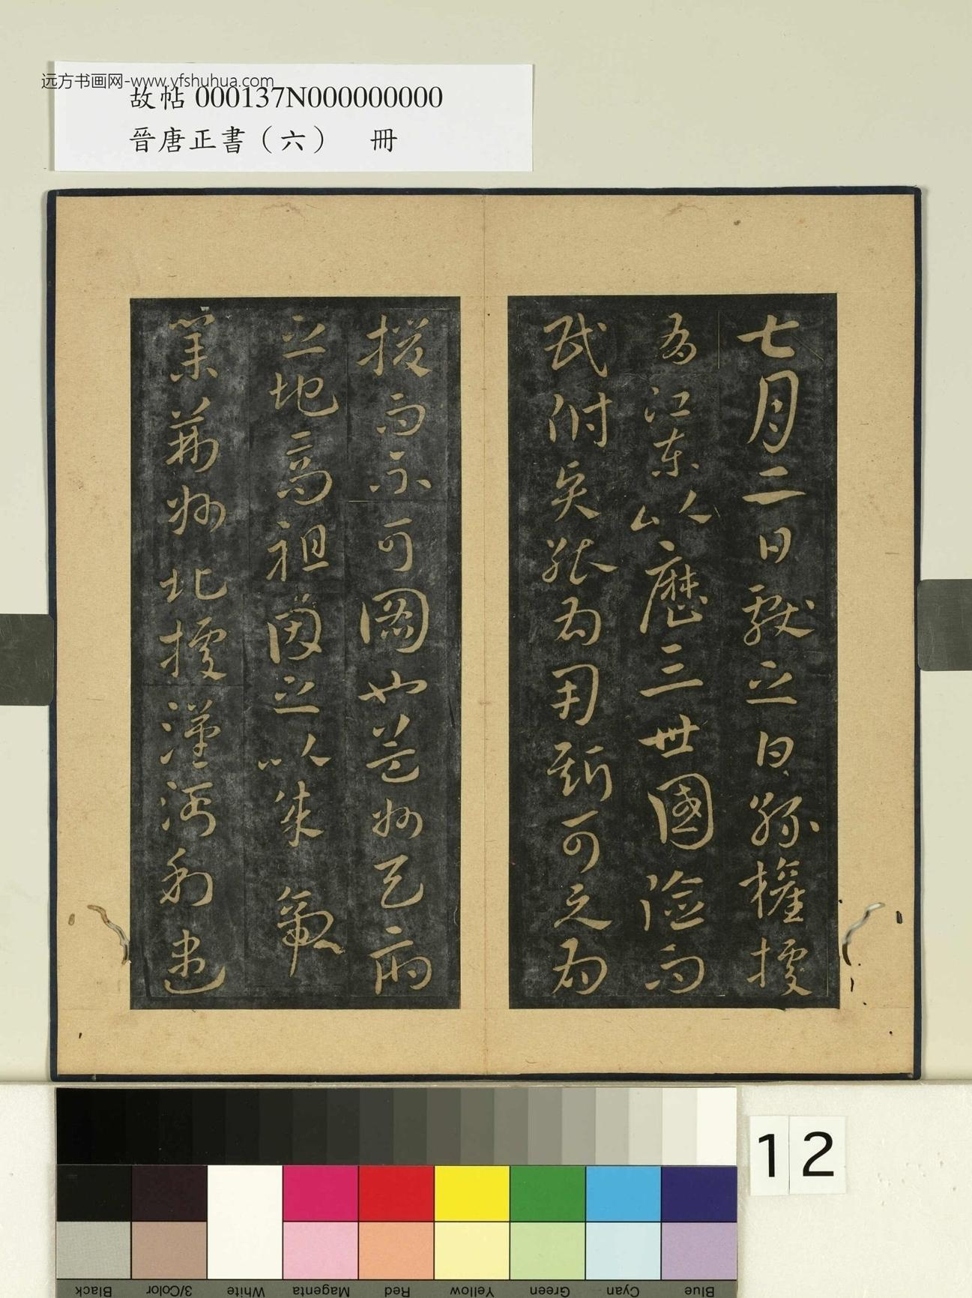 远方书画网-www.yfshuhua.com
故帖 000137N000000000
晉唐正書（六）　冊
七月二日獻之白孫權據
有江東以歷三世國險而
民附矣張為用斯可之為
援而不可圖也益州天府
之地高祖因之以成帝
業荊州北據漢沔利盡
12
Black
3/Color
White
Magenta
Red
Yellow
Green
Cyan
Blue